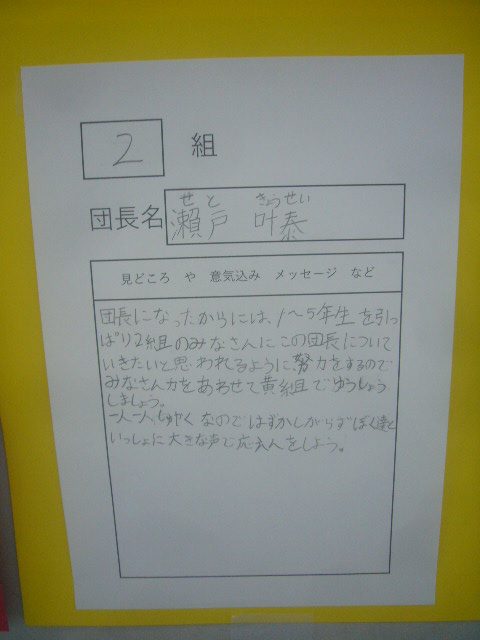 2 組
せと きらせい
団長名 瀬戸 叶泰
見どころ や 意気込み メッセージ など
団長になったからには、1〜5年生を引っ
ぱり2組のみなさんにこの団長について
いきたいと思われるように努力をするので
みなさん力をあわせて黄組でゆうしょう
しましょう。
一人一人しゅやくなのではずかしがらずぼく達と
いっしょに大きな声で応えんをしよう。